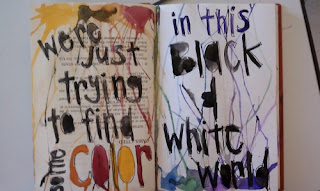 we're
just
trying
to find
some color
in this
Black
&
white
world